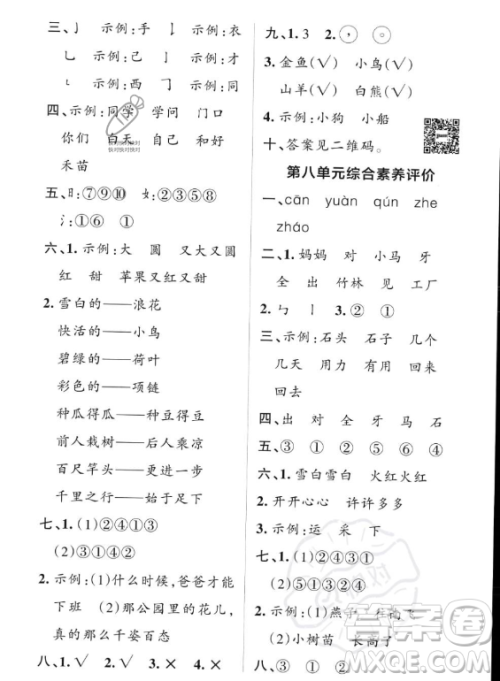 三、亅 示例:手 乚 示例:衣
乚 示例:也 亅 示例:才
乚 示例:西 ㇆ 示例:同
四、示例:同学 学问 门口
你们 白天 自己 和好
禾苗
五、日:⑦⑨⑩ 口:②③⑤⑧
氵:①⑥ 亻:④
六、1. 示例:大 圆 又大又圆
红 甜 苹果又红又甜
2. 雪白的——浪花
快活的——小鸟
碧绿的——荷叶
彩色的——蝴蝶
种瓜得瓜——种豆得豆
前人栽树——后人乘凉
百尺竿头——更进一步
千里之行——始于足下
七、1. (1)②④①③
(2)③①④②
2. 示例:(1)什么时候,爸爸才能
下班 (2)那公园里的花儿,
真的那么千姿百态
八、1. √ 2. √ 3. × 4. ×
九、1. 3 2.
3. 金鱼(√) 小鸟(√)
山羊(√) 白熊(√)
4. 示例:小狗 小船
十、答案见二维码。
第八单元综合素养评价
一、cān yuàn qún zhe
zháo
二、1. 妈妈 对 小马 牙
全 出 竹林 见 工厂
2. ㄣ 亅 3. ② ①
三、示例:石头 石子 几个
几天 用力 有用 回来
回去
四、出 对 全 牙 马 石
五、③ ① ② ⑤ ⑥ ④
六、1. 雪白雪白 火红火红
2. 开开心心 许许多多
3. 示例:运 采 下
七、1. (1)②④③①
(2)⑤①②③④
2. 示例:(1)燕子 在高飞
(2)小树苗 长高了
八、③ ① ② ④